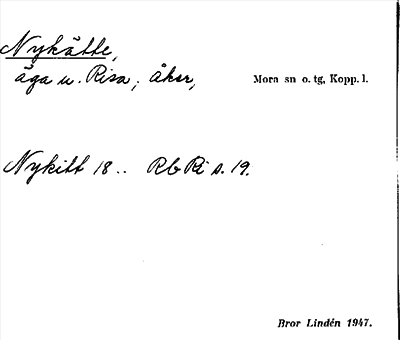 Nykätte,
äga u. Risa; åker, Mora sn o. tg, Kopp. l.
Nykitt 18 .. Rb Ri s. 19.
Bror Lindén 1947.